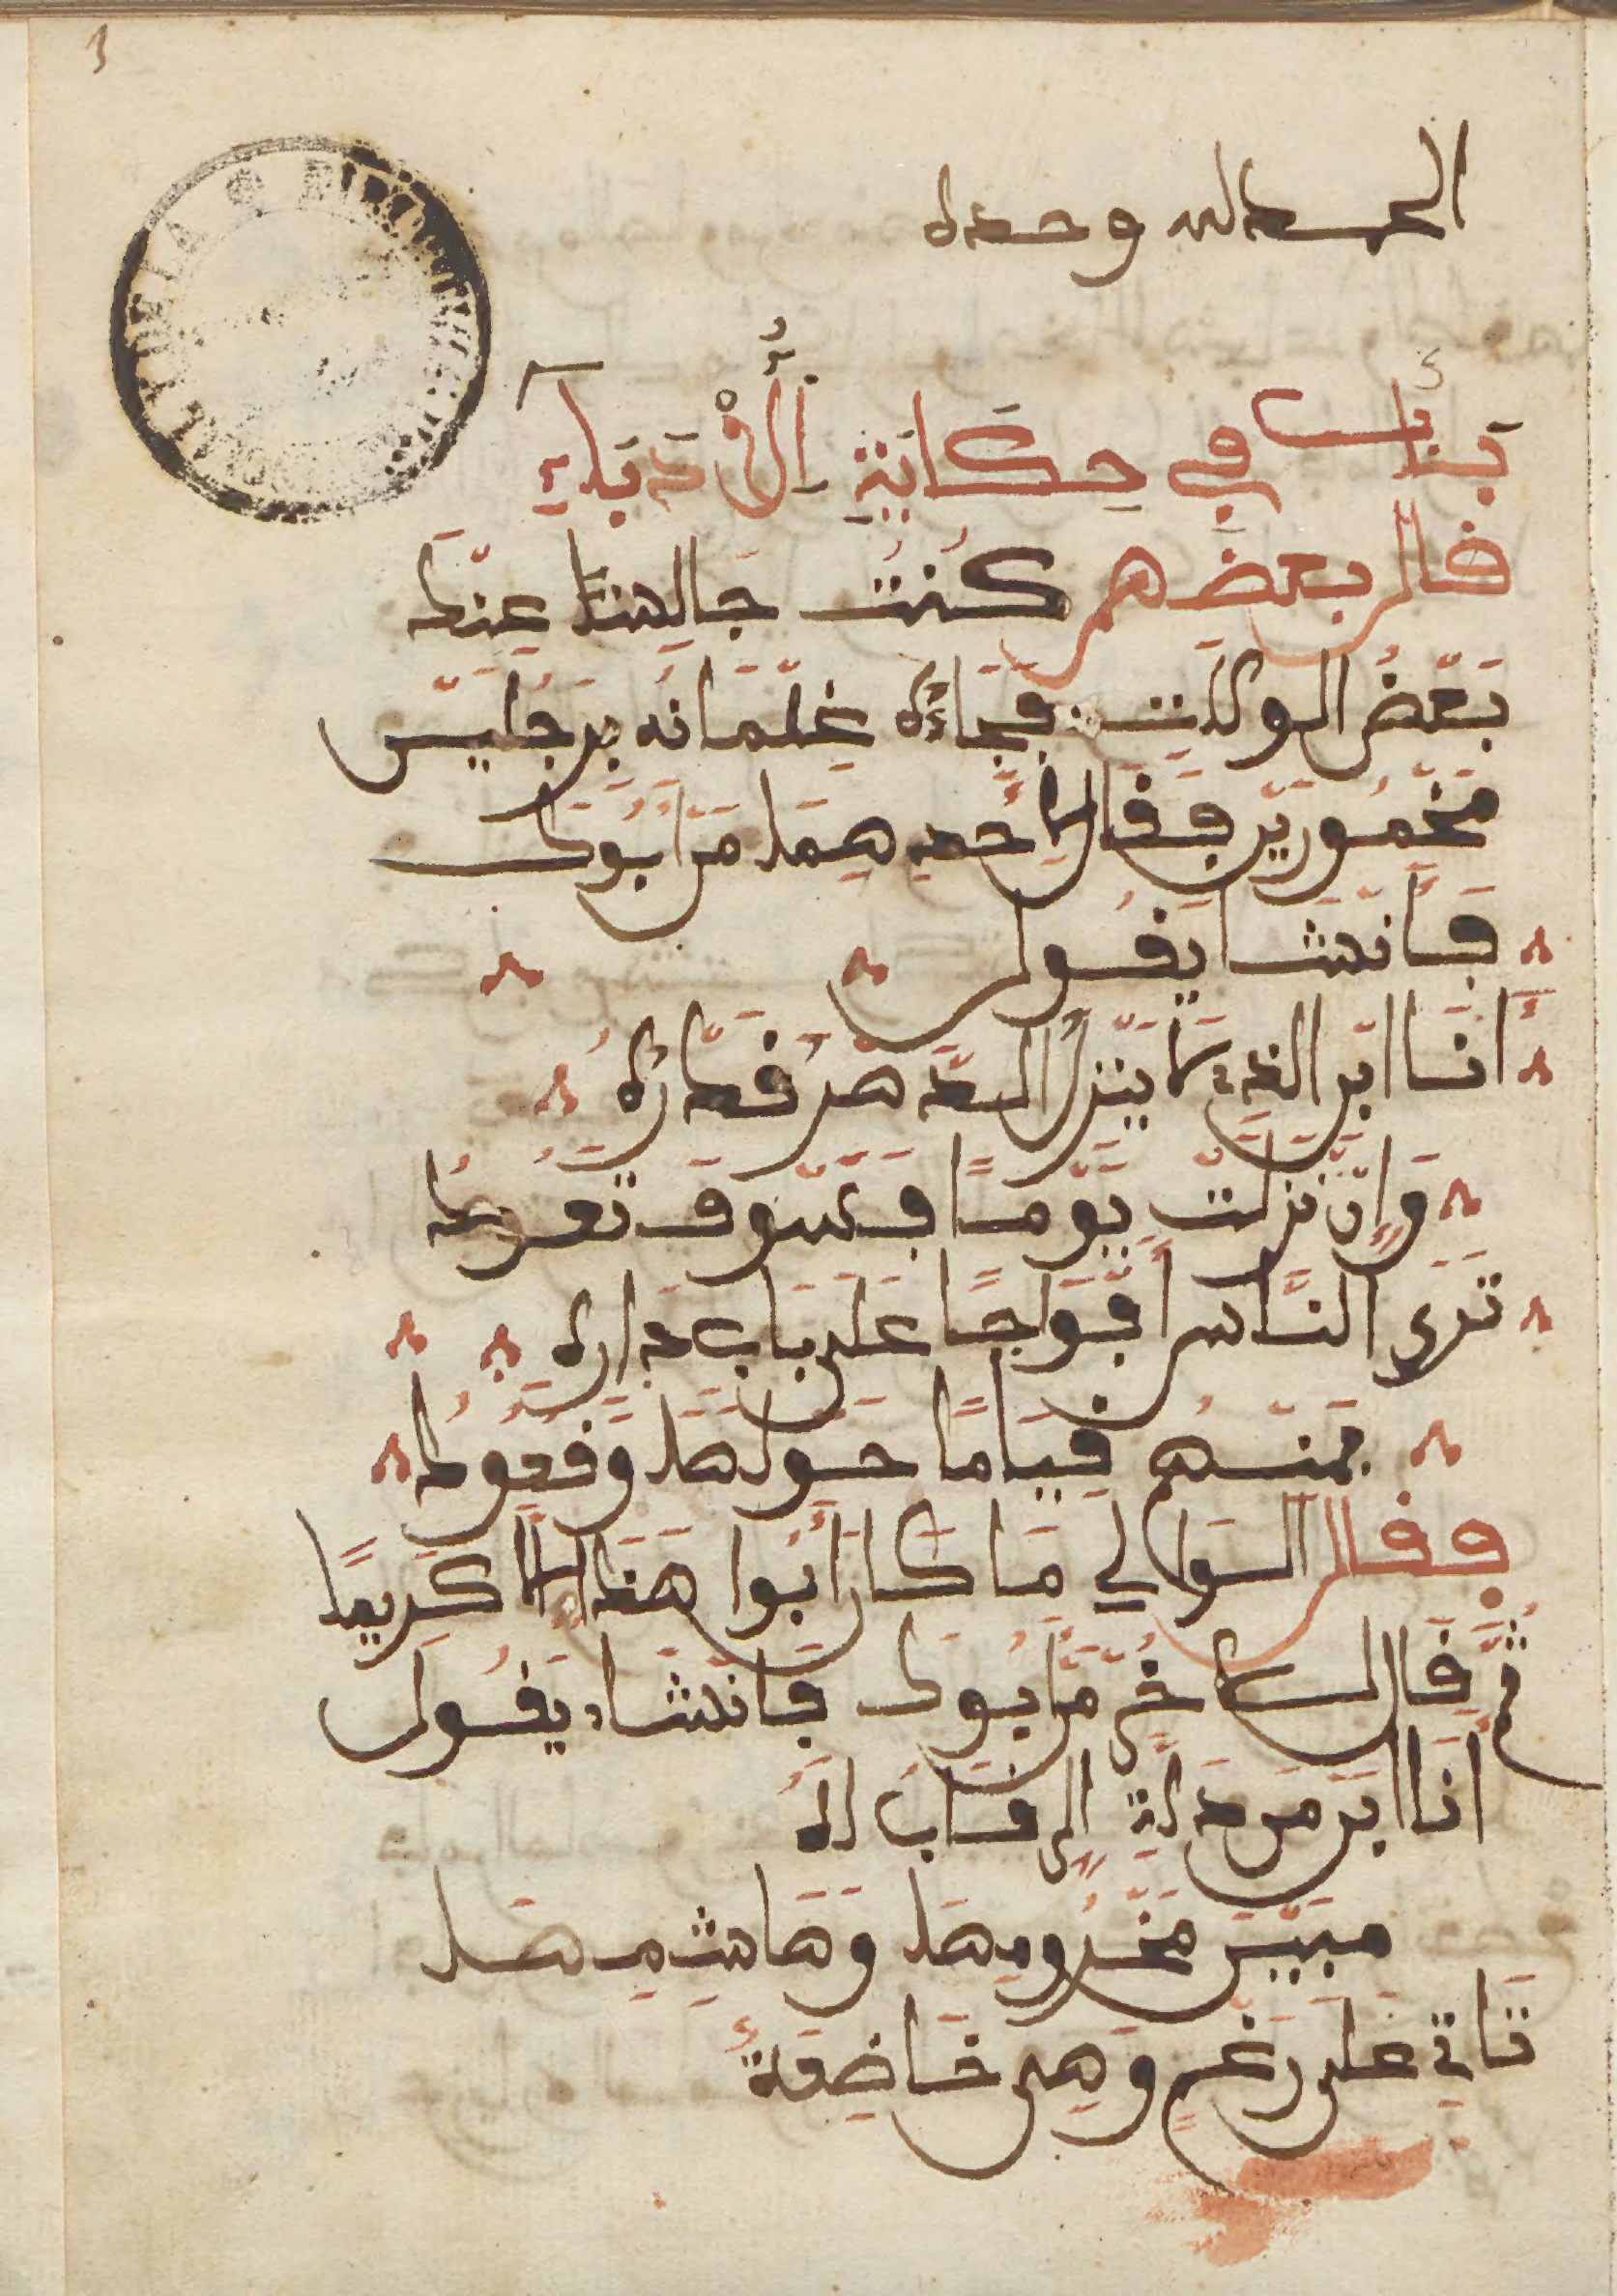 الحمد لله وحده
باب في حكاية الأدباء
قال بعضهم كنت جالسا عند
بعض الولات فجاءه غلمانه برجلين
مخمورين فقال لأحدهما من أبوك
فأنشا يقول
أنا ابن الذي لا ينزل الدهر قدره
وإن نزلت يوما فسوف تعود
ترى الناس أفواجا على باب داره
فمنهم قياما حولها وقعود
فقال الوالي ما كان أبوا هذا إلا كريما
ثم قال للاخر من أبوك فأنشا يقول
أنا ابن من دلة الرقاب له
مبين مخزومها وهاشمها
تاتي على رغم وهي خاضعة